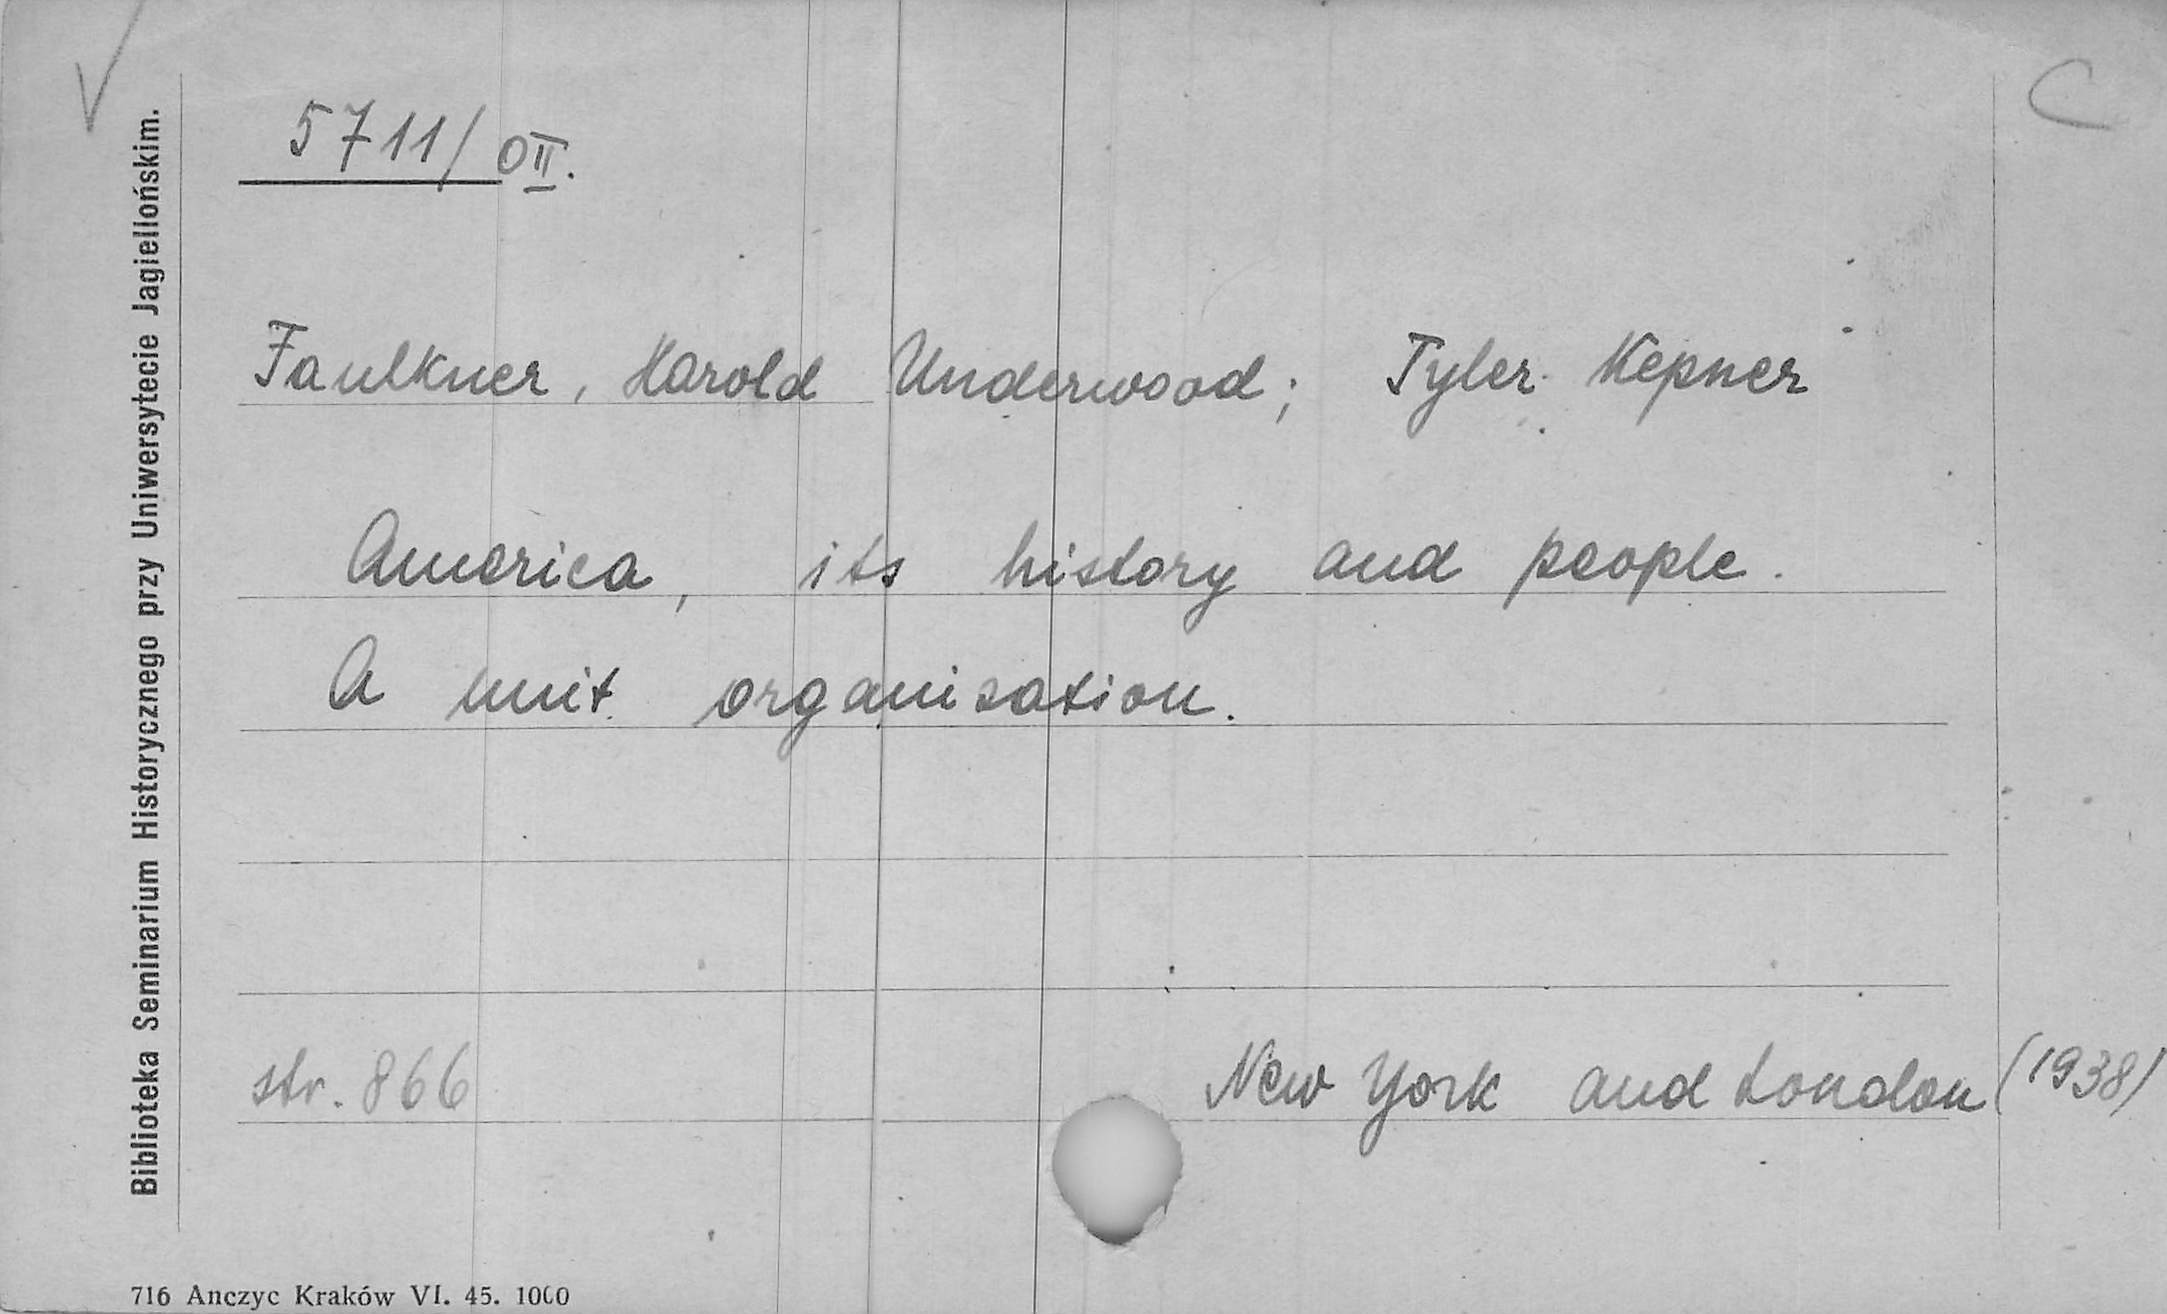 5711/OII.
C
Faulkner, Harold Underwood; Tyler Kepner
America, its history and people.
A unit organisation.
str. 866
New York and London (1938)
Biblioteka Seminarium Historycznego przy Uniwersytecie Jagiellońskim.
716 Anczyc Kraków VI. 45. 1000